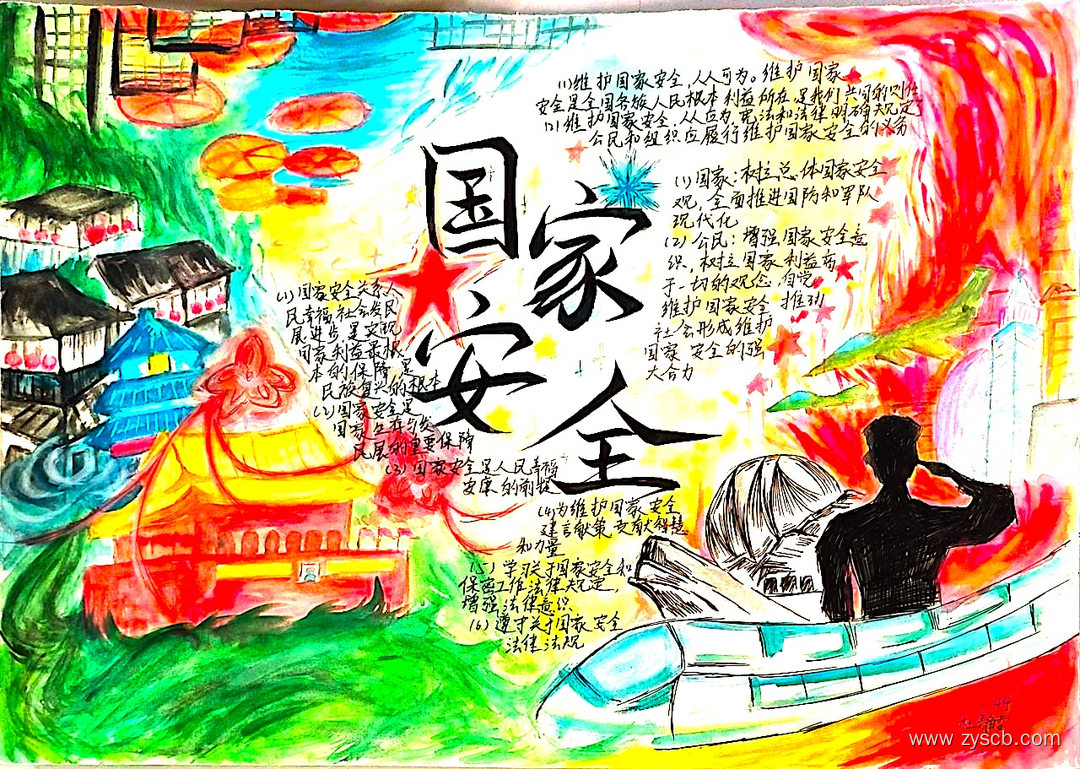 国家
安全
(1)维护国家安全,人人可为。维护国家
安全是全国各族人民根本利益所在,是我们共同的责任
(2)维护国家安全,人人应为,宪法和法律明确规定
公民和组织应履行维护国家安全的义务
(1)国家:树立总体国家安全
观,全面推进国防和军队
现代化
(2)公民:增强国家安全意
识,树立国家利益高
于一切的观念,自觉
维护国家安全 推动
社会形成维护
国家安全的强
大合力
(1)国家安全关系人
民幸福,社会发民
展进步是实现
国家利益最根
本的保障,是
民族复兴的根本
(2)国家安全是
国家生存与发
民展的重要保障
(3)国家安全是人民幸福
安康的前提
(4)为维护国家安全
建言献策贡献智慧
和力量
(5)学习关于国家安全和
保密工作法律规定,
增强法律意识
(6)遵守关于国家安全
法律法规
www.zyscb.com